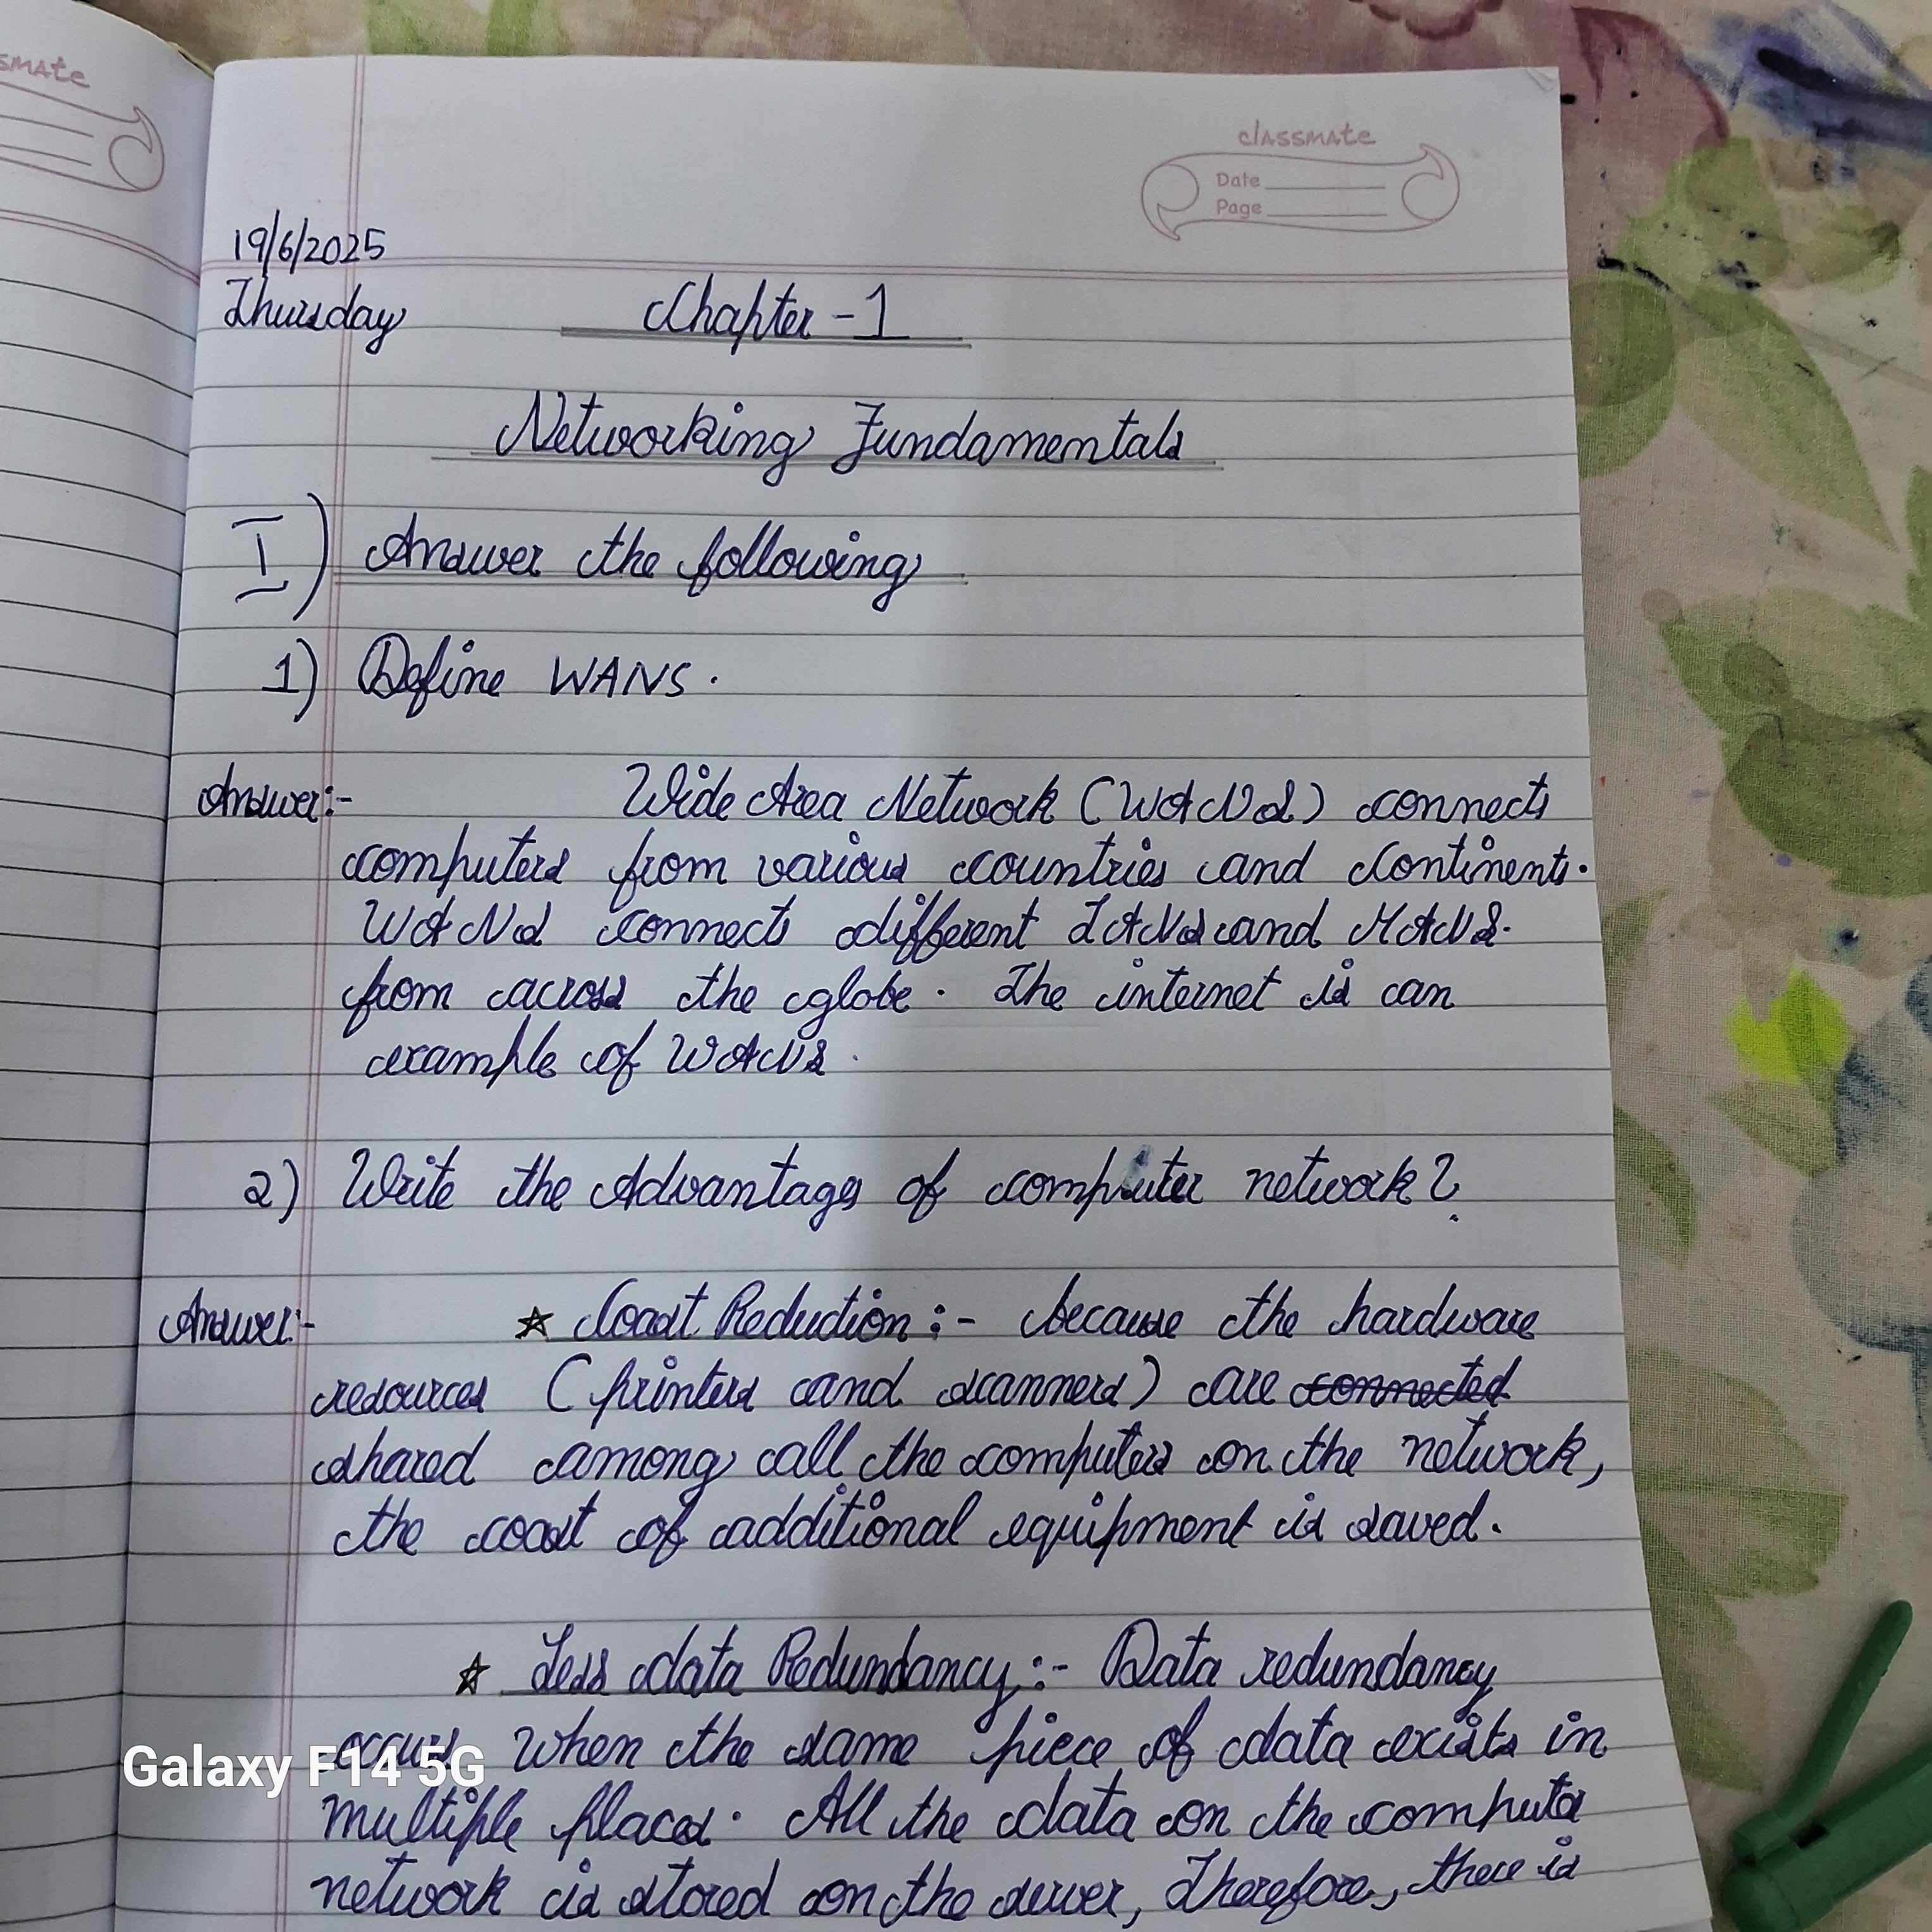 smate
classmate
Date
Page
19/6/2025
Thursday
Chapter - 1
Networking Fundamentals
I) Answer the following
1) Define WANS.
Answer:- Wide Area Network (WANs) connects
computers from various countries and continents.
WANs connects different LANs and MANS.
from across the globe. The internet is an
example of WANS.
2) Write the Advantages of computer network?
Answer:- ☆ Coast Reduction:- because the hardware
resources (printers and scanners) are connected
shared among all the computers on the network,
the coast of additional equipment is saved.
☆ Less data Redundancy:- Data redundancy
occurs when the same piece of data exists in
multiple places. All the data on the computer
network is stored on the server, Therefore, there is
Galaxy F14 5G